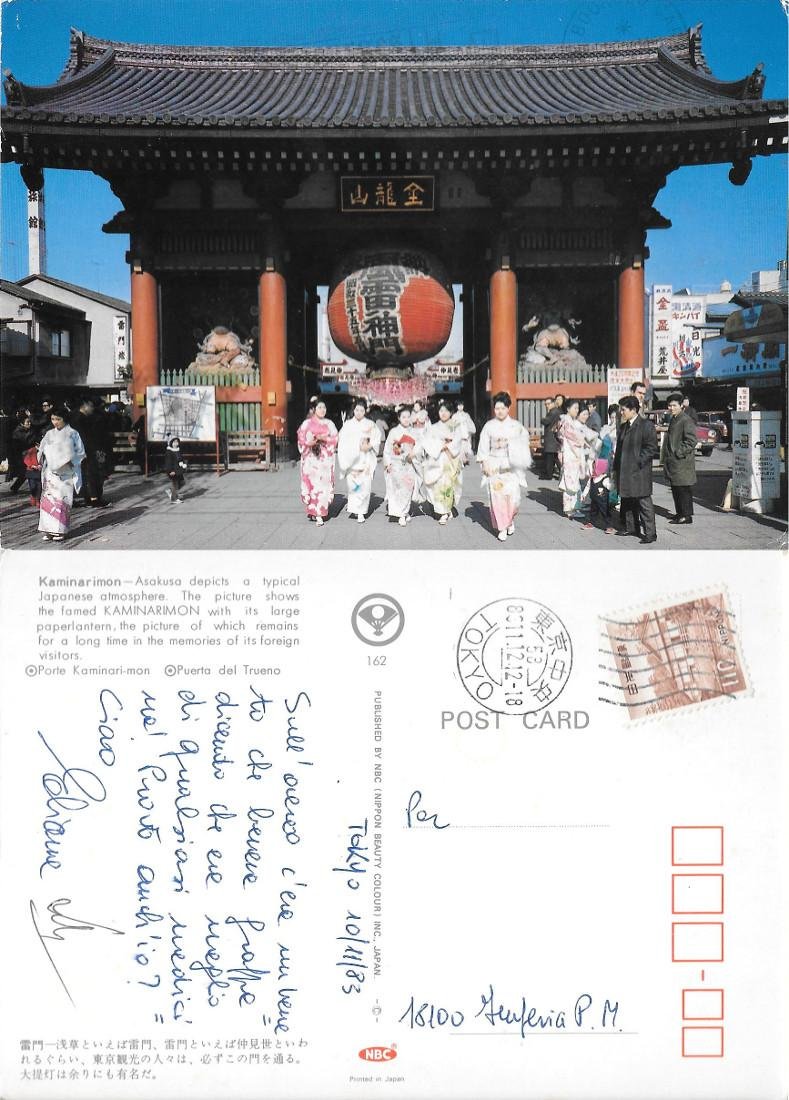 旅館
金龍山
雷門
金盃
荒井屋
清酒
キンパイ
Kaminarimon—Asakusa depicts a typical
Japanese atmosphere. The picture shows
the famed KAMINARIMON with its large
paperlantern, the picture of which remains
for a long time in the memories of its foreign
visitors.
Porte Kaminari-mon Puerta del Trueno
162
PUBLISHED BY NBC (NIPPON BEAUTY COLOUR) INC., JAPAN. -©-
POST CARD
東京中央
58
8311.12.12-18
TOKYO
NIPPON
日本郵便
Sull'aereo c'era un bene=
to che beveva grappa
dicendo che era meglio
di qualsiasi medici=
na! Provo anch'io?
Ciao
Tokyo 10/11/83
Per
18100 P.M.
雷門—浅草といえば雷門、雷門といえば仲見世といわ
れるぐらい、東京観光の人々は、必ずこの門を通る。
大提灯は余りにも有名だ。
NBC
Printed in Japan